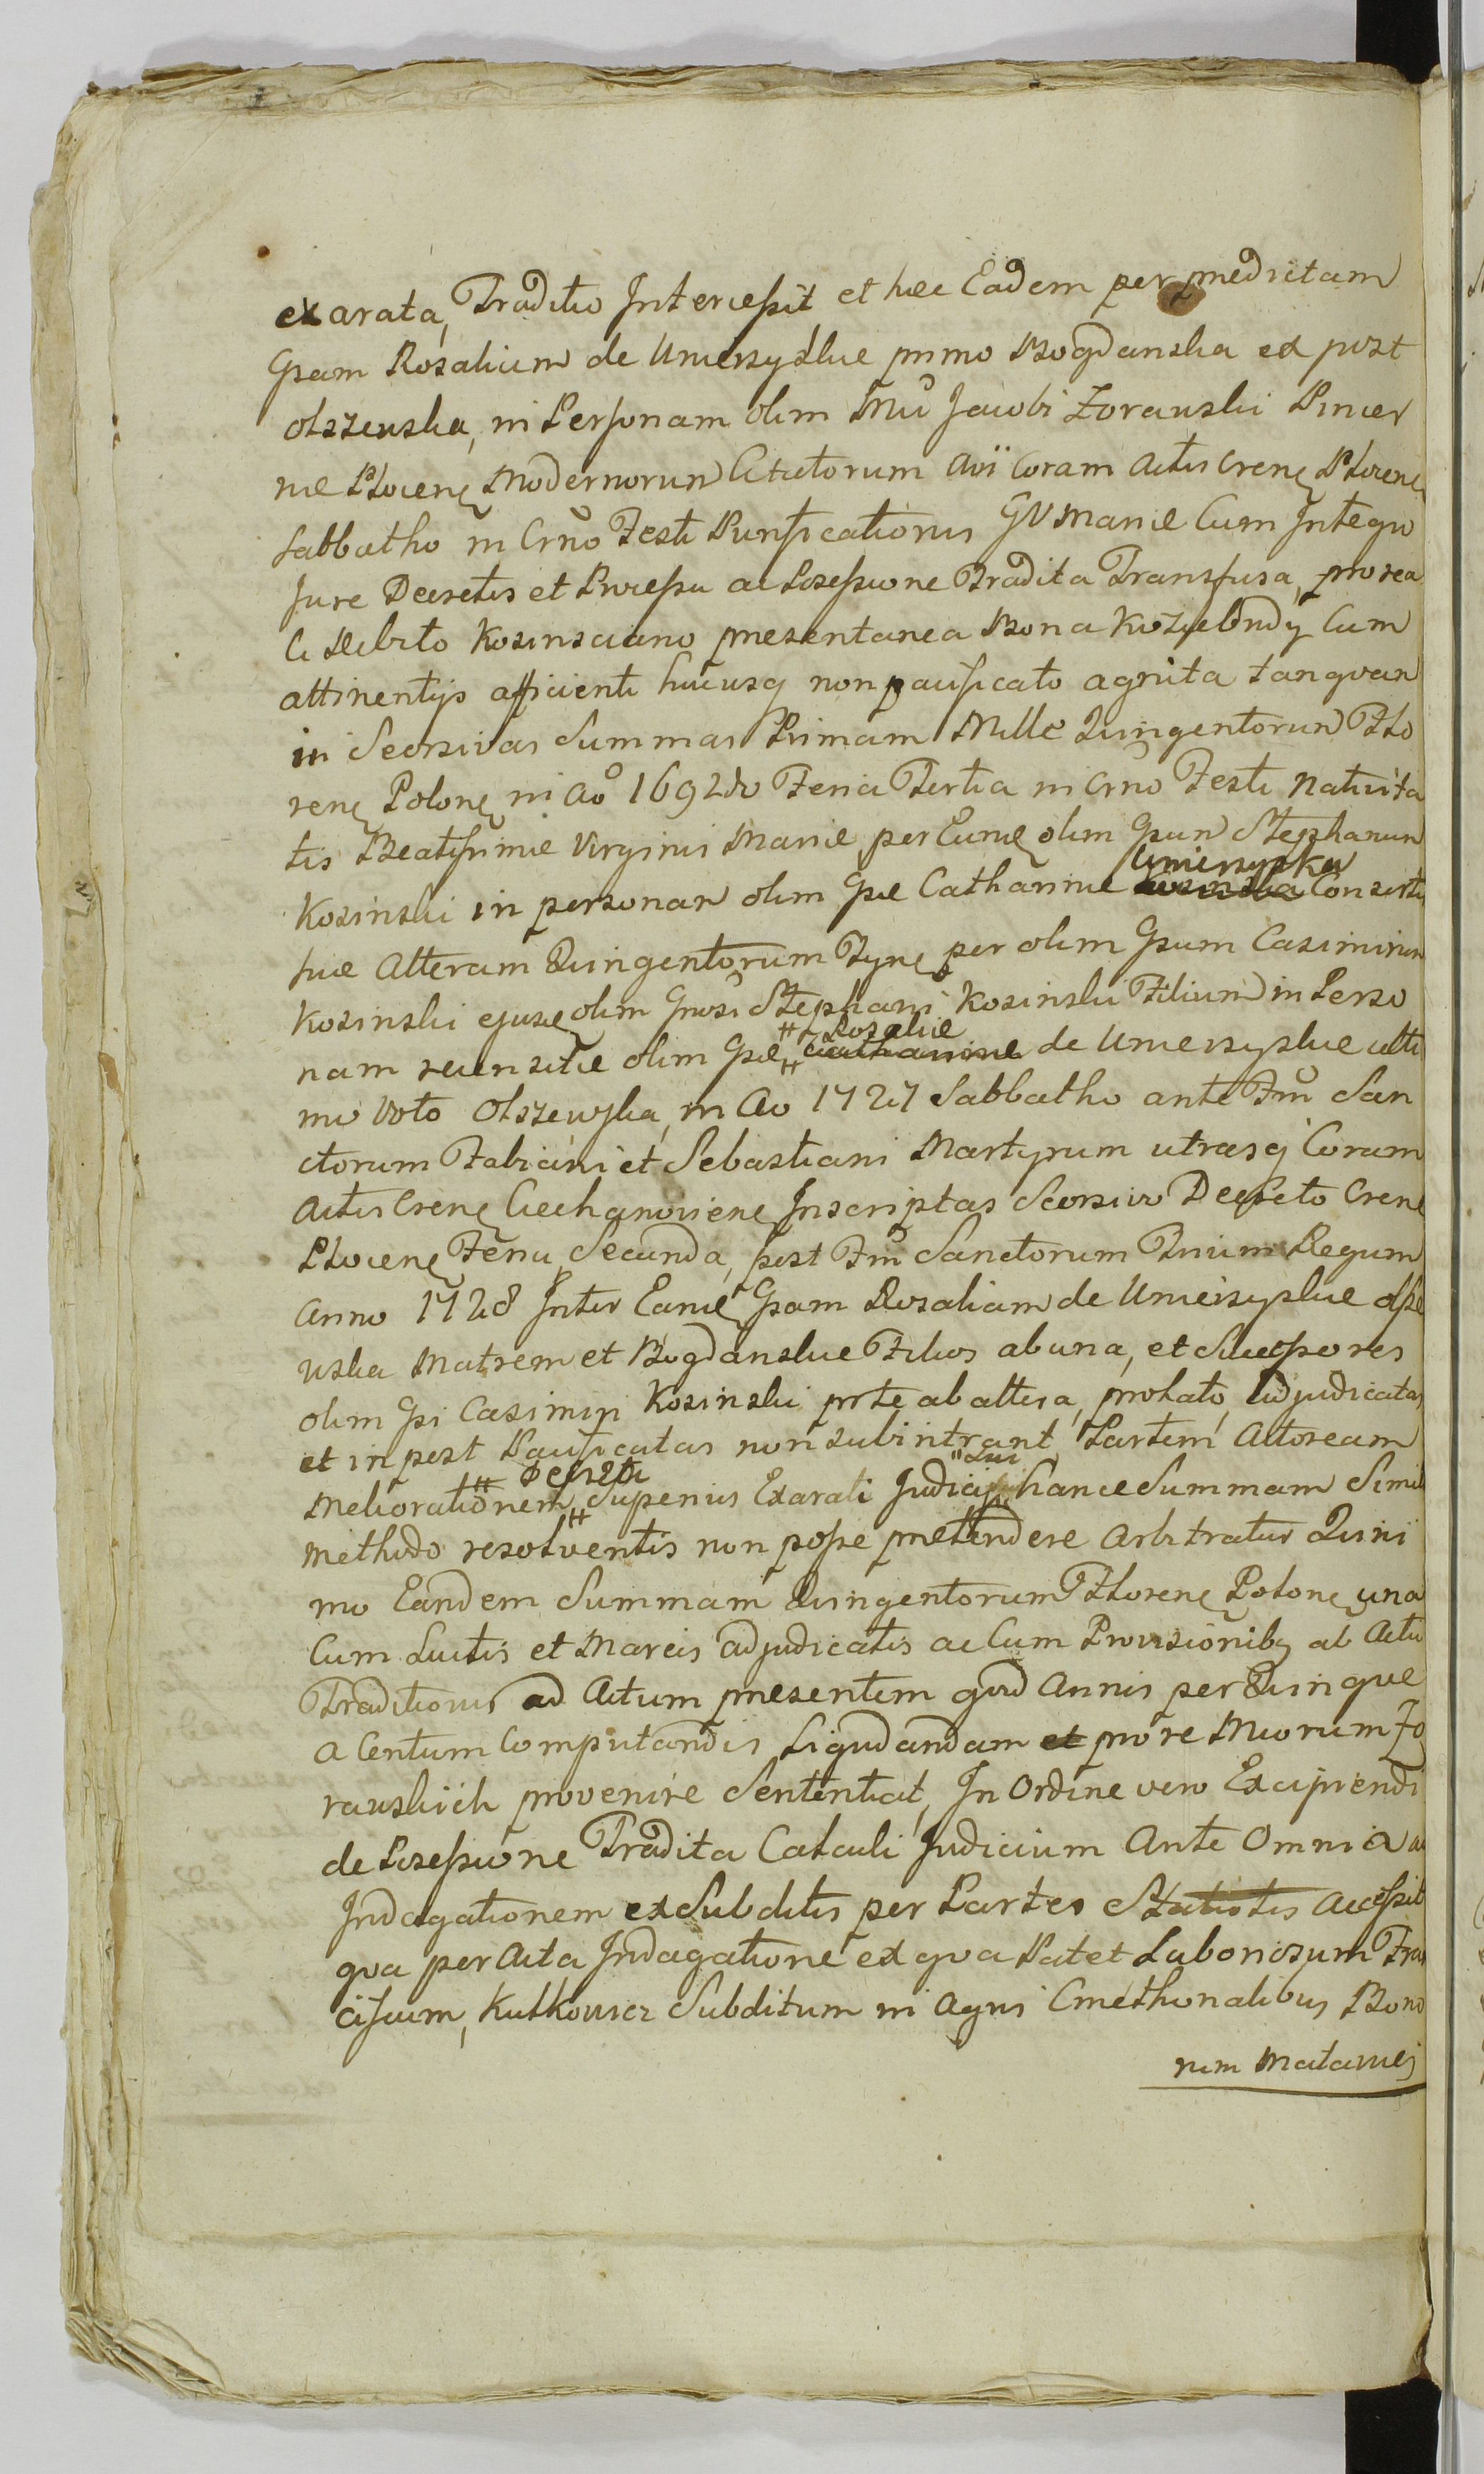 exarata, Traditio Intercessit et hæc Eadem per prædictam
Gsam Rosaliam de Umierzyskie primo Bogdanska ex post
Olszewska, in Personam olim Mci Jacobi Zorawski Pincer
næ Plocenę Modernorum Citatorum Avi Coram Actis Crenę Plocenę
Sabbatho in Crno Festi Purificationis GVMariæ Cum Integro
Jure Decretis et Processu ac Possessione Tradita Transfusa, pro rea
li Debito Kosinsciano præsentanea Bona Koziebrody Cum
attinentijs afficienti hucusq non pacificato agnita tanqvam
in Seorsivas Summas Primam Mille Quingentorum Flo
renę Polonę in Ao 1692do Feria Tertia in Crno Festi Nativita
tis Beatissimæ Virginis Mariæ per Eumę olim Gsum Stephanum
Kosinski in personam olim Gsæ Catharinæ Umierzyska Consortis
suæ Alteram Quingentorum Flrnę per olim Gsum Casimirum
Kosinski ejusdę olim Gnosi Stephani Kosinski Filium in Perso
nam recensitæ olim Gsæ # Rosaliæ # de Umierzyskie ulti
mo voto Olszewska, in Ao 1727 Sabbatho ante Fm San
ctorum Fabiani et Sebastiani Martyrum utrasq Coram
Actis Crenę Ciechanoviene Inscriptas Seorsivo Decreto Crenę
Plocenę Feria Secunda, post Fm Sanctorum Trium Regum
Anno 1728 Inter Eamę Gsam Rosaliam de Umierzyskie Olsze
wska Matrem et Bogdanskie Filios ab una, et Successores
olim Gsi Casimiri Kosinski prte ab altera, prolato, adjudicatas
et in post Pacificatas non subintrant, Partem Actoream
Meliorationem # Decreti # Superius Exarati Judicij Sui hancce Summam Simili
methodo resolventis non posse prætendere arbitratur Quini
mo Eandem Summam Quingentorum Florenę Polonę una
Cum Luctis et Marcis adjudicatis ac Cum Provisionibq ab Actu
Traditionis ad Actum præsentem qvod Annis per Quinque
a Centum Computandis Liqvidandam pro re Mcorum Zo
rawskich provenire Sententiat, In Ordine vero Excipiendi
de Possessione Tradita Calculi Judicium Ante Omnia ad
Indagationem ex Subditis per Partes Statutis accessit
qva peracta Indagatione ex qva Patet Laboriosum Fran
ciscum, Kutkowicz Subditum in Agris Cmethonalibus Bono
rum Matawej